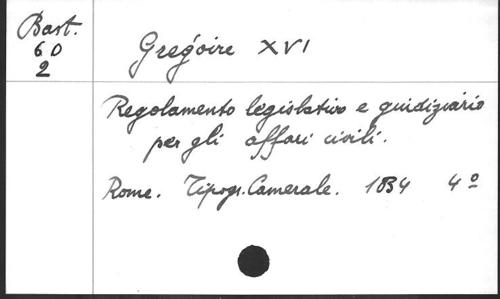 Bast.
60
2
Grégoire XVI
Regolamento legislativo e guidiziario
per gli affari civili.
Rome. Tipogr. Camerale. 1834 4º